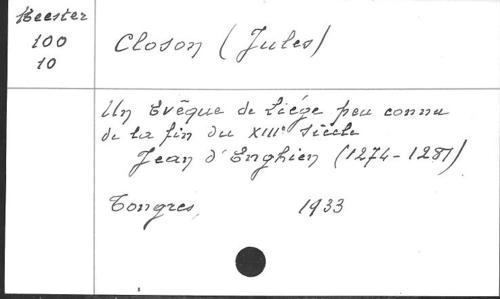 Meester
100
10
Closon (Jules)
Un Evêque de Liége peu connu
de la fin du XIIIe siècle
Jean d'Enghien (1274-1281)
Tongres, 1933